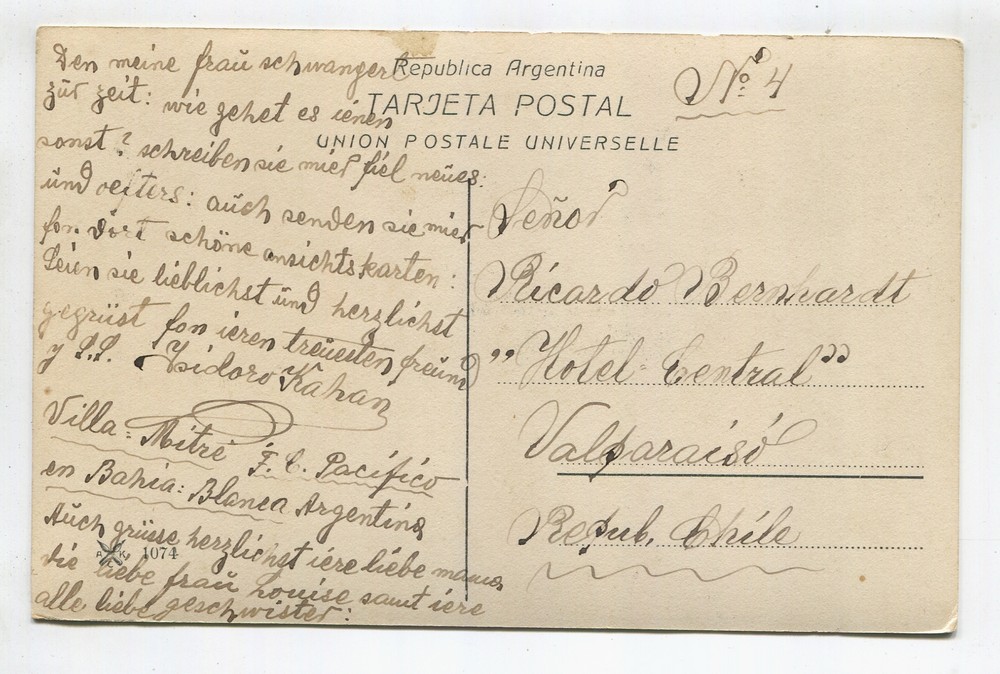 Den meine fraŭ schwanger
zŭr zeit: wie gehet es ienen
sonst? schreiben sie mier fiel neŭes:
ŭnd oefters: aŭch senden sie mier
fon dort schöne ansichtskarten:
Seien sie lieblichst ŭnd herzlichst
gegrüst fon ieren treŭesten freŭnd
y S.S. Isidoro Kahan
Villa = Mitre F. C. Pacífico
en Bahia = Blanca Argentina
Aŭch grüsse herzlichst iere liebe mama
die liebe fraŭ Louise samt iere
alle liebe geschwister:
A K 1074
Republica Argentina
TARJETA POSTAL
UNION POSTALE UNIVERSELLE
Nº 4
Señor
Ricardo Bernhardt
"Hotel = Central"
Valparaisó
Repub. Chile